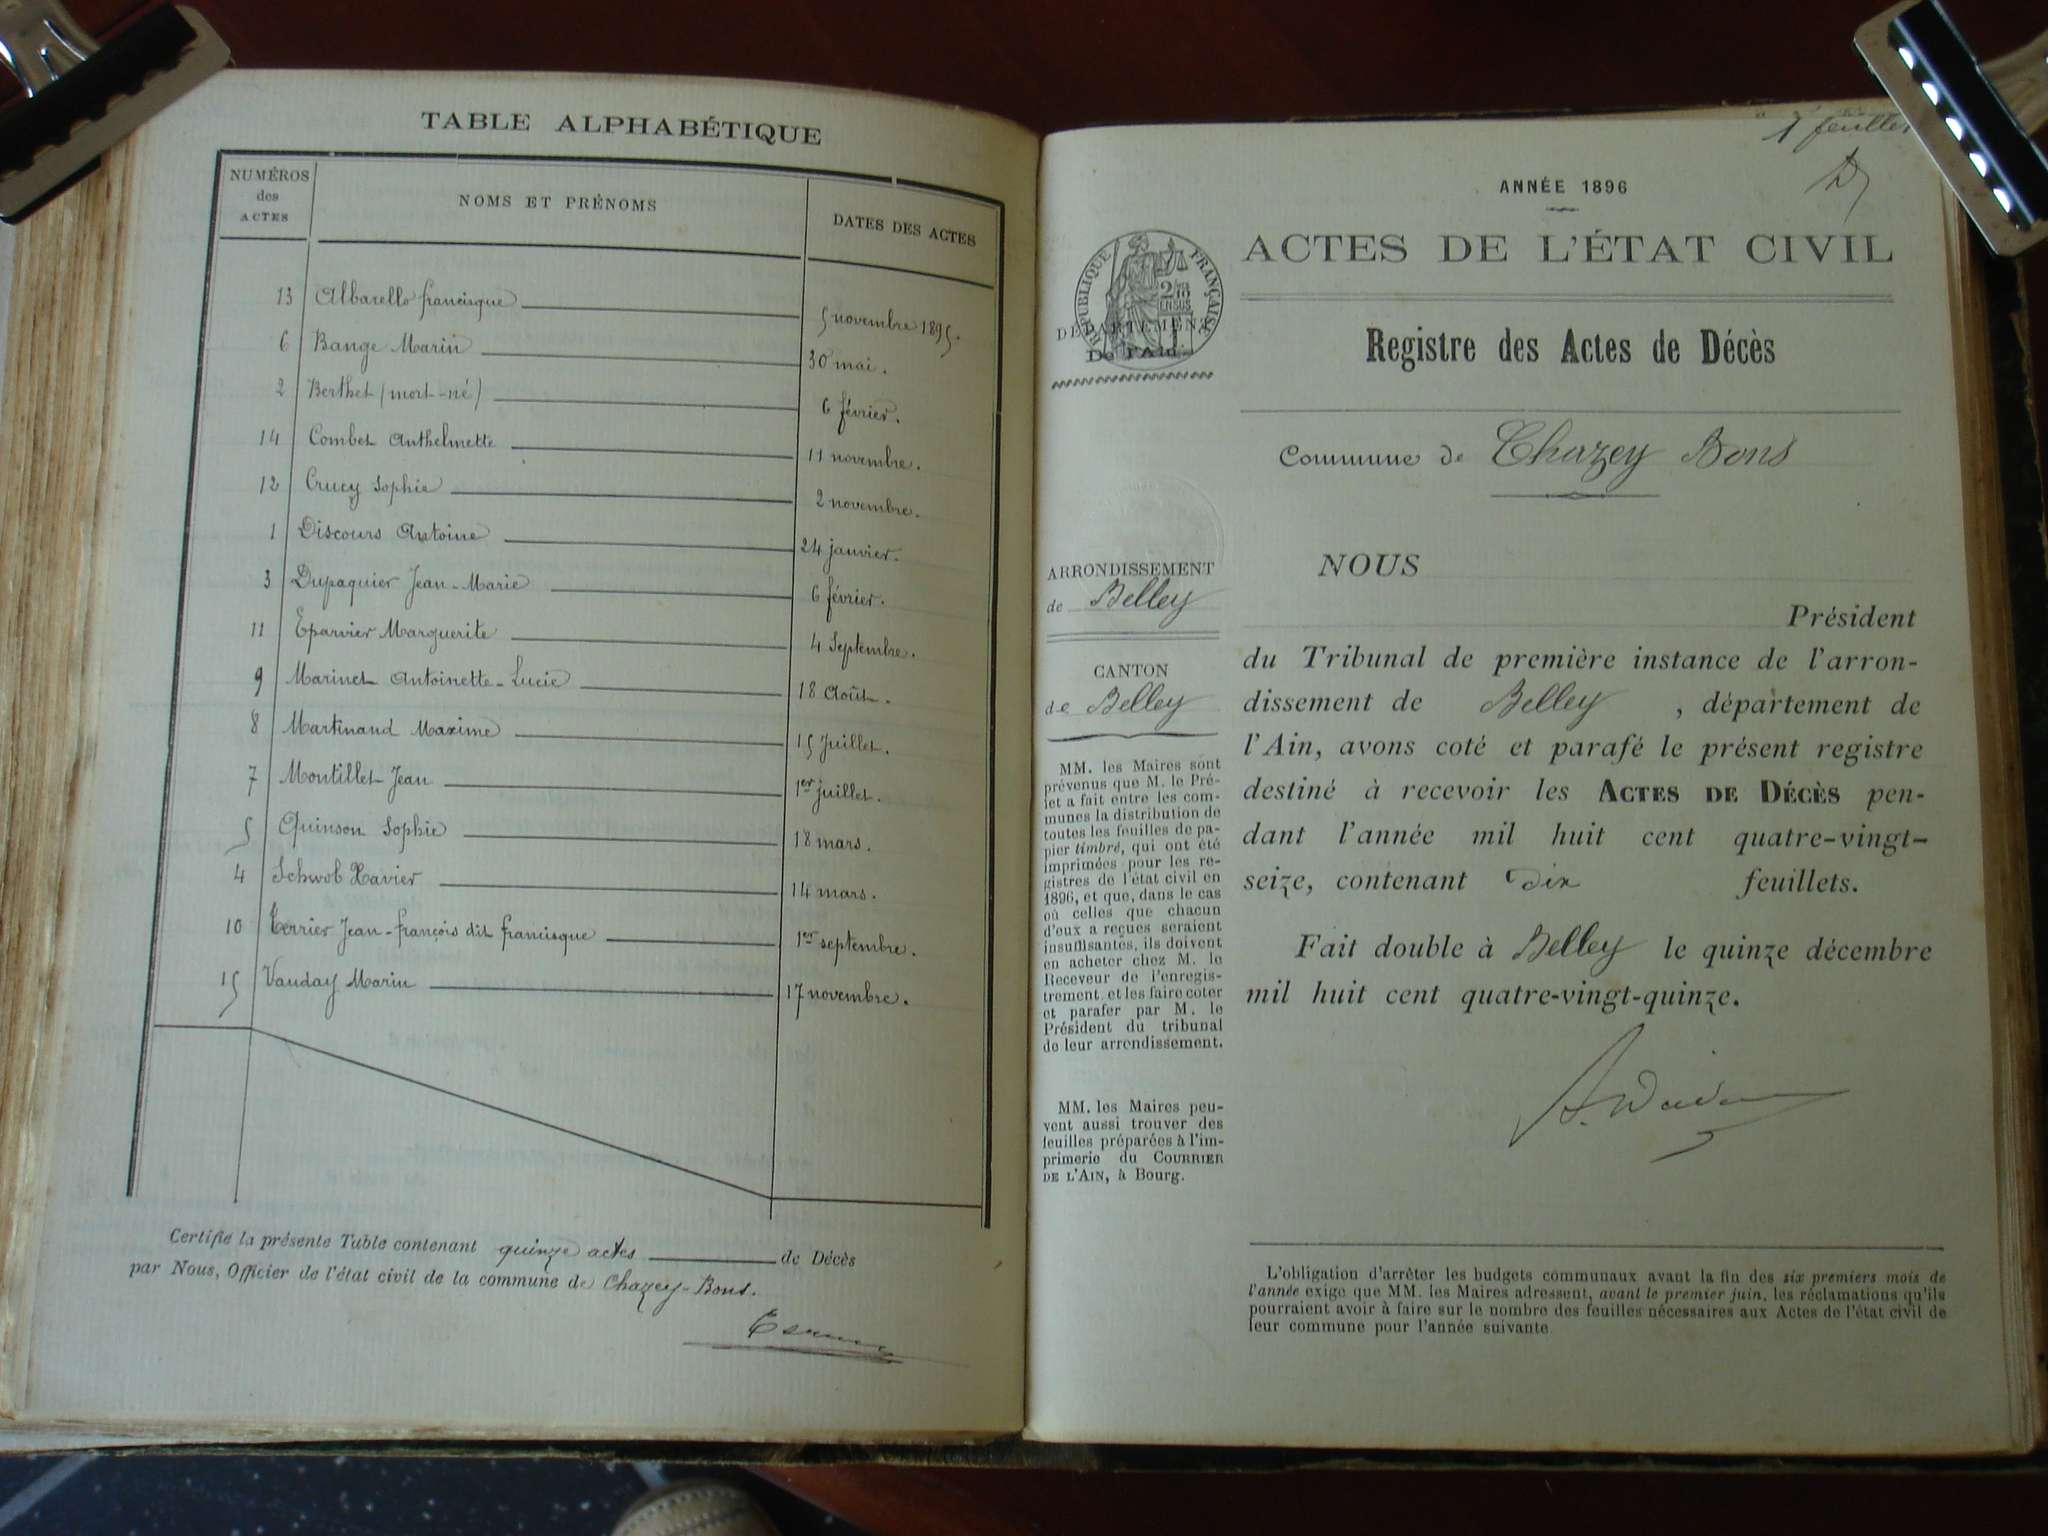 TABLE ALPHABÉTIQUE
NUMÉROS des ACTES
NOMS ET PRÉNOMS
DATES DES ACTES
13 Albarello francisque 5 novembre 1895.
6 Bange Marin 30 mai.
2 Berthet (mort-né) 6 février.
14 Combet Anthelmette 11 novembre.
12 Crucy Sophie 2 novembre.
1 Discours Antoine 24 janvier.
3 Dupaquier Jean-Marie 6 février.
11 Eparvier Marguerite 4 Septembre.
9 Marinet Antoinette-Lucie 18 Août.
8 Martinand Maxime 15 Juillet.
7 Montillet Jean 1er juillet.
5 Quinson Sophie 18 mars.
4 Schwob Xavier 14 mars.
10 Terrier Jean-françois dit francisque 1er septembre.
15 Vauday Marin 17 novembre.
Certifié la présente Table contenant quinze actes de Décès
par Nous, Officier de l'état civil de la commune de Chazey-Bons.
1 feuillet
ANNÉE 1896
ACTES DE L'ÉTAT CIVIL
RÉPUBLIQUE FRANÇAISE
DÉPARTEMENT
De l'Ain
Registre des Actes de Décès
Commune de Chazey Bons
ARRONDISSEMENT
de Belley
CANTON
de Belley
MM. les Maires sont
prévenus que M. le Pré-
fet a fait entre les com-
munes la distribution de
toutes les feuilles de pa-
pier timbré, qui ont été
imprimées pour les re-
gistres de l'état civil en
1896, et que, dans le cas
où celles que chacun
d'eux a reçues seraient
insuffisantes, ils doivent
en acheter chez M. le
Receveur de l'enregis-
trement et les faire coter
et parafer par M. le
Président du tribunal
de leur arrondissement.
MM. les Maires peu-
vent aussi trouver des
feuilles préparées à l'im-
primerie du COURRIER
DE L'AIN, à Bourg.
NOUS
Président
du Tribunal de première instance de l'arron-
dissement de Belley, département de
l'Ain, avons coté et parafé le présent registre
destiné à recevoir les ACTES DE DÉCÈS pen-
dant l'année mil huit cent quatre-vingt-
seize, contenant dix feuillets.
Fait double à Belley le quinze décembre
mil huit cent quatre-vingt-quinze.
L'obligation d'arrêter les budgets communaux avant la fin des six premiers mois de
l'année exige que MM. les Maires adressent, avant le premier juin, les réclamations qu'ils
pourraient avoir à faire sur le nombre des feuilles nécessaires aux Actes de l'état civil de
leur commune pour l'année suivante